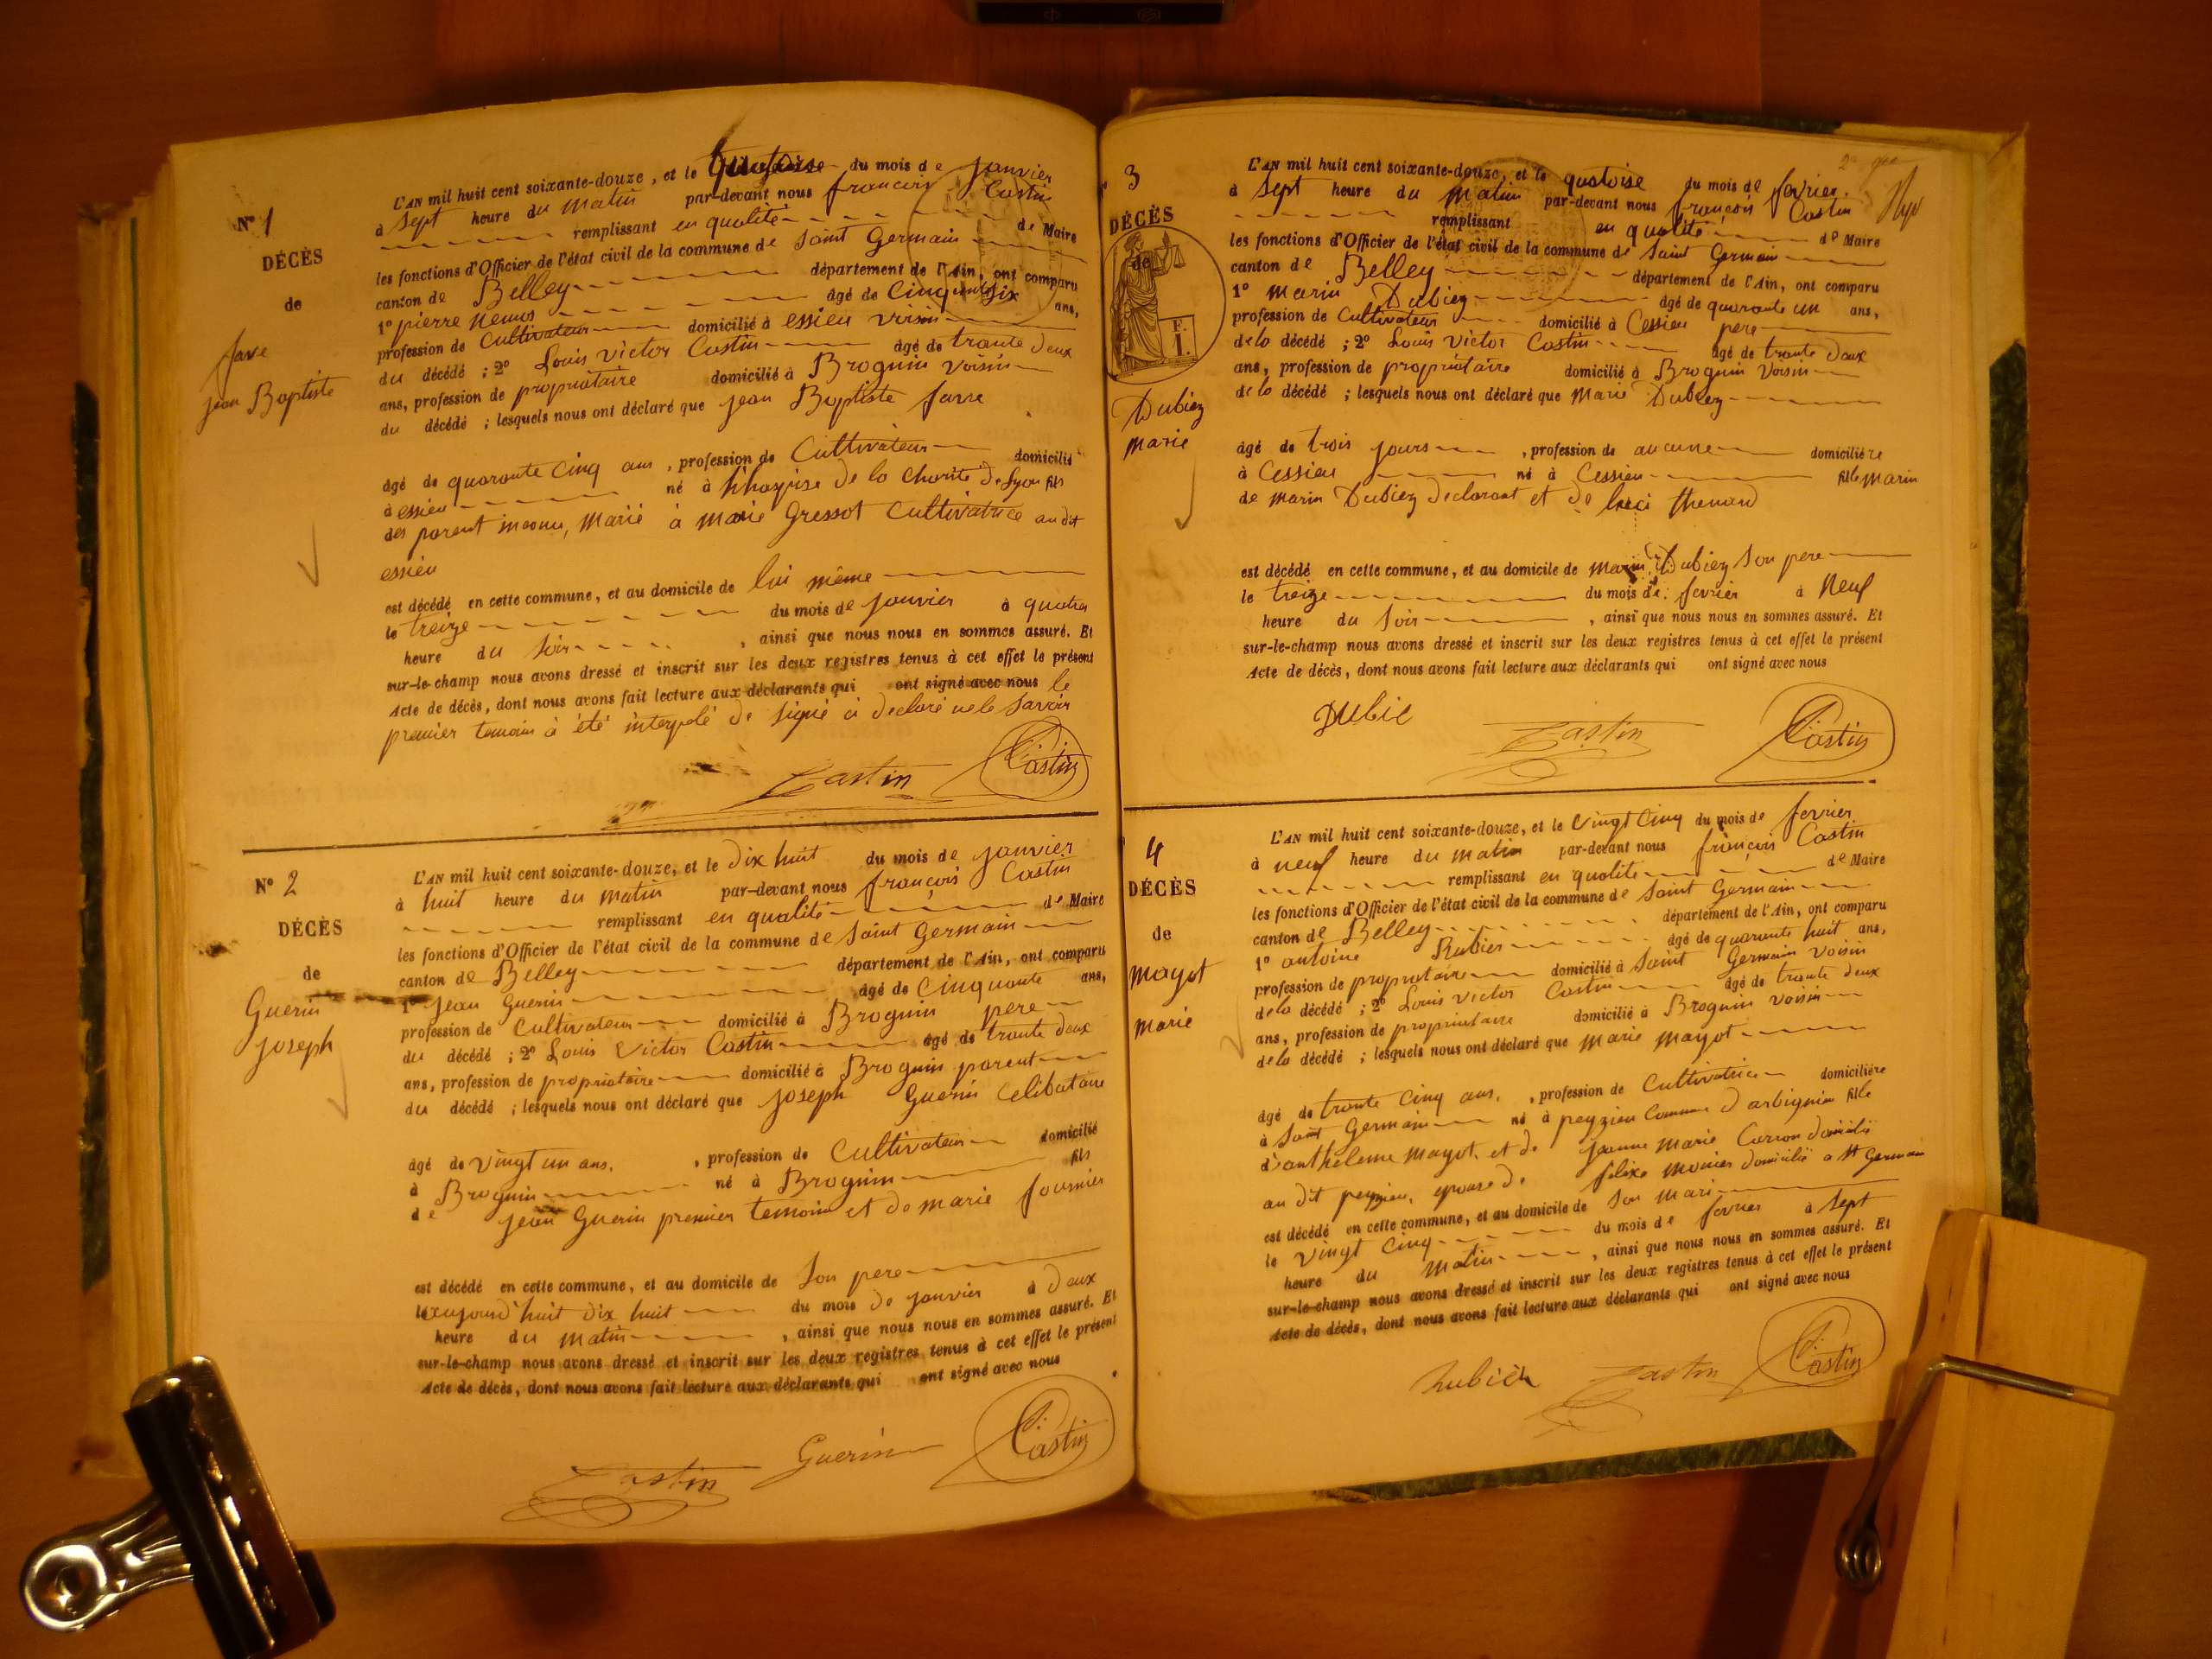 N° 1
DÉCÈS
de
favre
jean Baptiste
L'AN mil huit cent soixante-douze, et le quatorse du mois de janvier
à sept heure du matin par-devant nous françois Castin
remplissant en qualité de Maire
les fonctions d'Officier de l'état civil de la commune de Saint Germain
canton de Belley département de l'Ain, ont comparu
1° pierre âgé de cinquante six ans,
profession de Cultivateur domicilié à essieu voisin
du décédé ; 2° Louis victor Castin âgé de trante deux
ans, profession de propriétaire domicilié à Brognin voisin
du décédé ; lesquels nous ont déclaré que jean Baptiste favre
âgé de quarante cinq ans, profession de Cultivateur domicilié
à essieu né à de la charité de Lyon fils
des parent inconnu, Marié à Marie Gressot Cultivatrice au dit
essieu
est décédé en cette commune, et au domicile de lui même
le treize du mois de janvier à quatre
heure du soir, ainsi que nous nous en sommes assuré. Et
sur-le-champ nous avons dressé et inscrit sur les deux registres tenus à cet effet le présent
Acte de décès, dont nous avons fait lecture aux déclarants qui ont signé avec nous le
premier temoin à été interpelé de signé à declaré ne le savoir
Castin Castin
N° 2
DÉCÈS
de
Guerin
joseph
L'AN mil huit cent soixante-douze, et le dix huit du mois de janvier
à huit heure du matin par-devant nous françois Castin
remplissant en qualité de Maire
les fonctions d'Officier de l'état civil de la commune de Saint Germain
canton de Belley département de l'Ain, ont comparu
1° Jean Guerin âgé de cinquante ans,
profession de Cultivateur domicilié à Brognin pere
du décédé ; 2° Louis victor Castin âgé de trante deux
ans, profession de propriétaire domicilié à Brognin parent
du décédé ; lesquels nous ont déclaré que joseph Guerin Celibataire
âgé de vingt un ans, profession de Cultivateur domicilié
à Brognin né à Brognin fils
de jean Guerin premier temoin et de marie fournier
est décédé en cette commune, et au domicile de son pere
le aujourd'huit dix huit du mois de janvier à deux
heure du matin, ainsi que nous nous en sommes assuré. Et
sur-le-champ nous avons dressé et inscrit sur les deux registres tenus à cet effet le présent
Acte de décès, dont nous avons fait lecture aux déclarants qui ont signé avec nous
Castin Guerin Castin
3
DÉCÈS
de
F. I.
Dubiez
marie
L'AN mil huit cent soixante-douze, et le quatorse du mois de fevrier
à sept heure du matin par-devant nous françois Castin
remplissant en qualité de Maire
les fonctions d'Officier de l'état civil de la commune de Saint Germain
canton de Belley département de l'Ain, ont comparu
1° marin Dubiez âgé de quarante un ans,
profession de Cultivateur domicilié à Cessieu pere
de la décédé ; 2° Louis victor Castin âgé de trante deux
ans, profession de propriétaire domicilié à Brognin voisin
de la décédé ; lesquels nous ont déclaré que Marie Dubiez
âgé de trois jours, profession de aucune domiciliére
à Cessieu né à Cessieu fille marin
de marin Dubiez declarant et de thenard
est décédé en cette commune, et au domicile de marin Dubiez son pere
le treize du mois de fevrier à neuf
heure du soir, ainsi que nous nous en sommes assuré. Et
sur-le-champ nous avons dressé et inscrit sur les deux registres tenus à cet effet le présent
Acte de décès, dont nous avons fait lecture aux déclarants qui ont signé avec nous
Dubie Castin Castin
4
DÉCÈS
de
mayot
marie
L'AN mil huit cent soixante-douze, et le vingt cinq du mois de fevrier
à neuf heure du matin par-devant nous françois Castin
remplissant en qualité de Maire
les fonctions d'Officier de l'état civil de la commune de Saint Germain
canton de Belley département de l'Ain, ont comparu
1° antoine Rubier âgé de quarante huit ans,
profession de propriataire domicilié à Saint Germain voisin
de la décédé ; 2° Louis victor Castin âgé de trante deux
ans, profession de propriétaire domicilié à Brognin voisin
de la décédé ; lesquels nous ont déclaré que marie mayot
âgé de trante cinq ans, profession de Cultivatrice domiciliére
à Saint Germain né à peyzieu Commune d'arbignieu fille
d'antheleme mayot et de jeanne marie Carron domicilié
au dit peyzieu, epouse de felixe monier domicilié a St Germain
est décédé en cette commune, et au domicile de son mari
le vingt cinq du mois de fevrier à sept
heure du matin, ainsi que nous nous en sommes assuré. Et
sur-le-champ nous avons dressé et inscrit sur les deux registres tenus à cet effet le présent
Acte de décès, dont nous avons fait lecture aux déclarants qui ont signé avec nous
Rubier Castin Castin